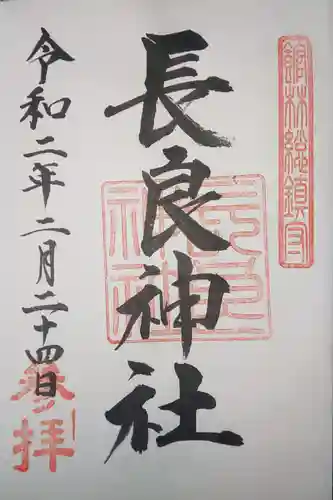 館林総鎮守
長良神社
長良神社
令和二年二月二十四日
奉拝